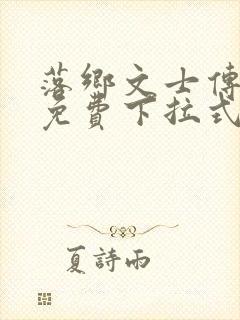 落鄉文士傳
免費下拉式
夏詩雨